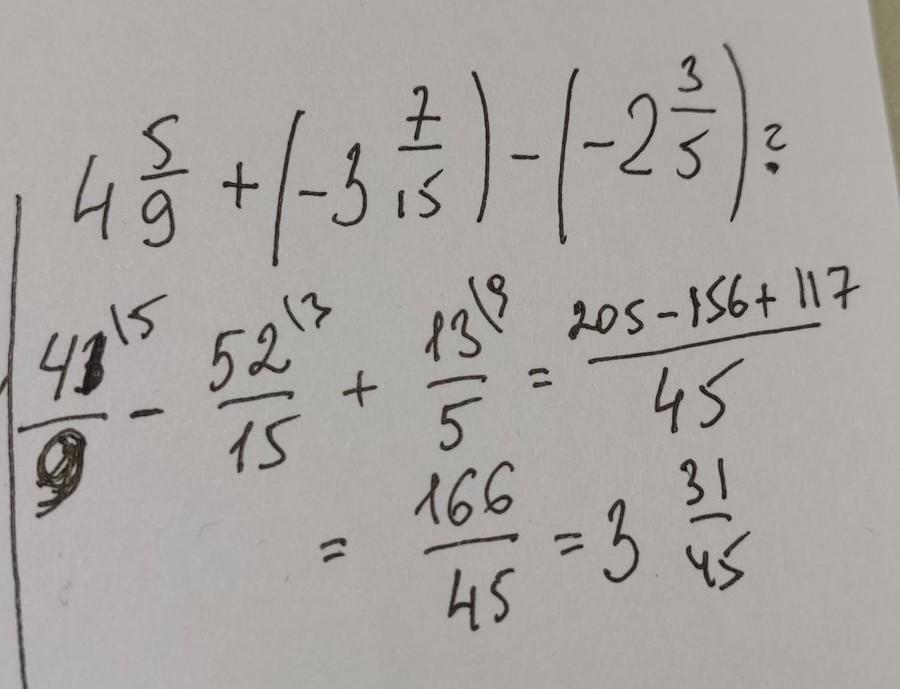 4 5/9 + (-3 7/15) - (-2 3/5) ?
41\5/9 - 52\3/15 + 13\9/5 = 205-156+117/45
= 166/45 = 3 31/45